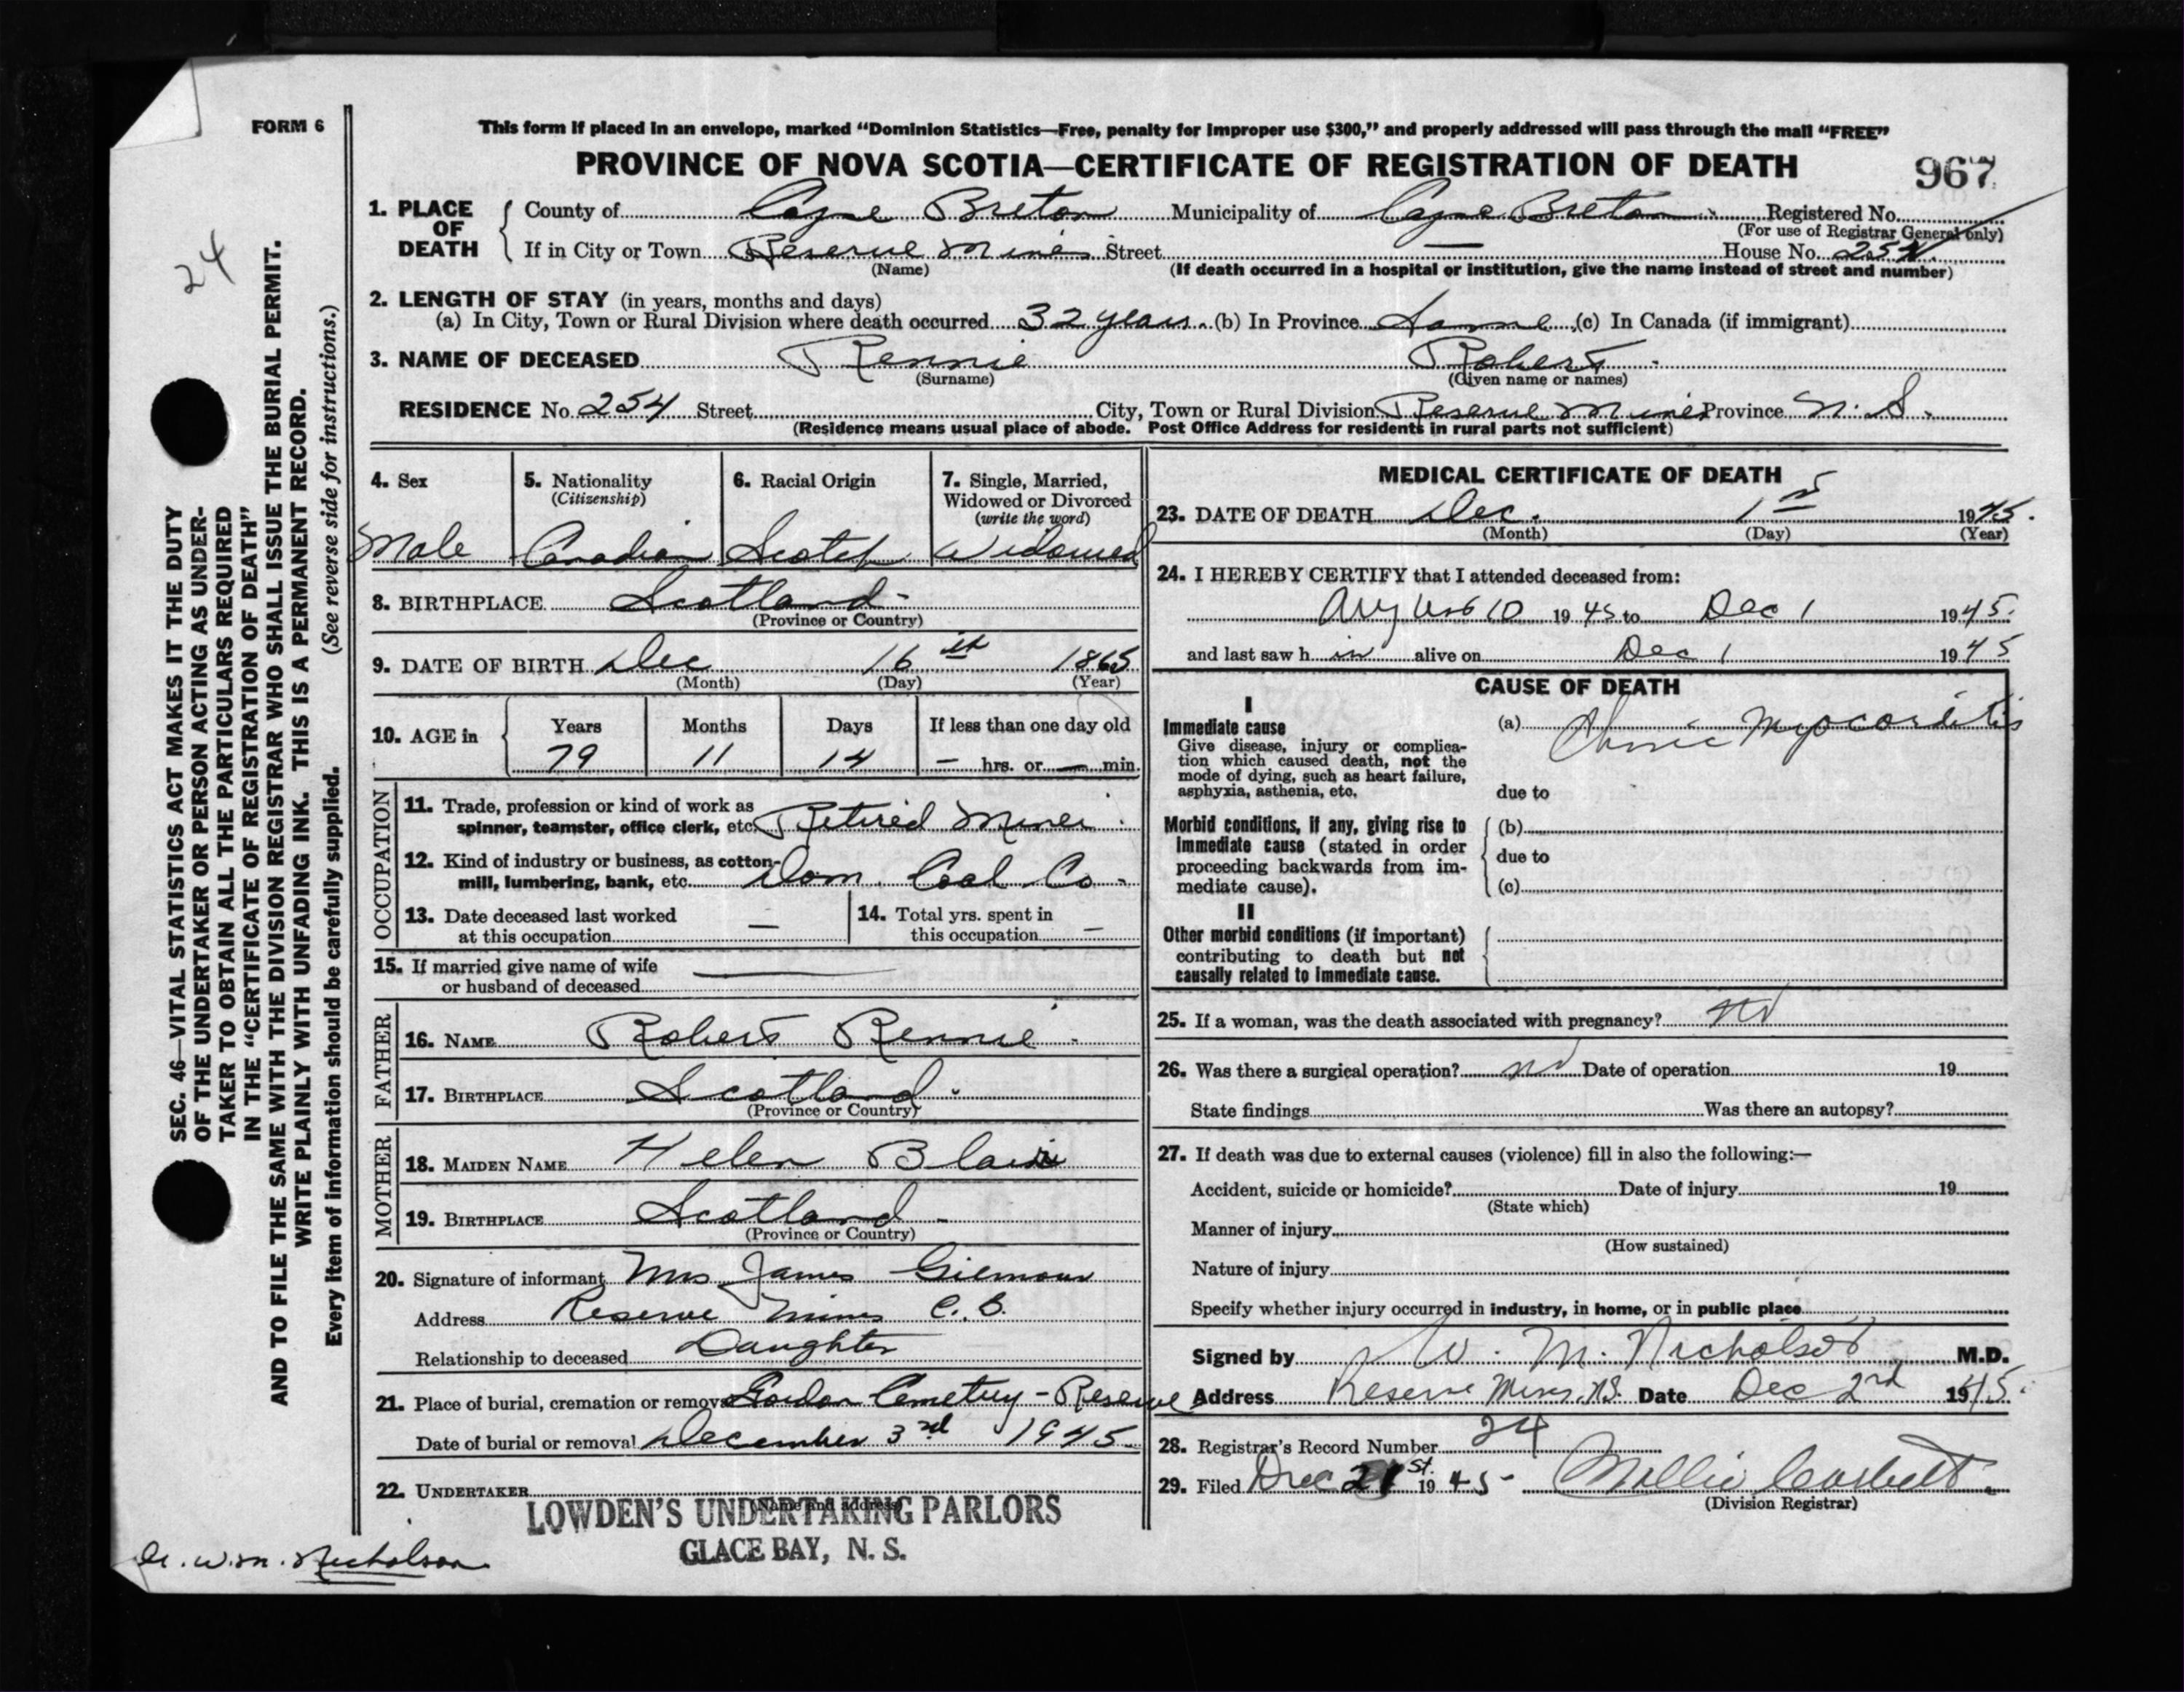 FORM 6
This form if placed in an envelope, marked “Dominion Statistics—Free, penalty for improper use $300,” and properly addressed will pass through the mail “FREE”
PROVINCE OF NOVA SCOTIA—CERTIFICATE OF REGISTRATION OF DEATH
967
24
SEC. 46—VITAL STATISTICS ACT MAKES IT THE DUTY
OF THE UNDERTAKER OR PERSON ACTING AS UNDER-
TAKER TO OBTAIN ALL THE PARTICULARS REQUIRED
IN THE “CERTIFICATE OF REGISTRATION OF DEATH”
AND TO FILE THE SAME WITH THE DIVISION REGISTRAR WHO SHALL ISSUE THE BURIAL PERMIT.
WRITE PLAINLY WITH UNFADING INK. THIS IS A PERMANENT RECORD.
Every item of information should be carefully supplied. (See reverse side for instructions.)
1. PLACE OF DEATH
County of Cape Breton Municipality of Cape Breton Registered No.
(For use of Registrar General only)
If in City or Town Reserve Mines Street — House No. 254
(Name) (If death occurred in a hospital or institution, give the name instead of street and number)
2. LENGTH OF STAY (in years, months and days)
(a) In City, Town or Rural Division where death occurred 32 years. (b) In Province Same (c) In Canada (if immigrant)
3. NAME OF DECEASED Rennie Robert
(Surname) (Given name or names)
RESIDENCE No. 254 Street City, Town or Rural Division Reserve Mines Province N.S.
(Residence means usual place of abode. Post Office Address for residents in rural parts not sufficient)
4. Sex
Male
5. Nationality
(Citizenship)
Canadian
6. Racial Origin
Scotch
7. Single, Married,
Widowed or Divorced
(write the word)
Widowed
8. BIRTHPLACE Scotland
(Province or Country)
9. DATE OF BIRTH Dec 16th 1865
(Month) (Day) (Year)
10. AGE in
Years Months Days If less than one day old
79 11 14 — hrs. or — min.
OCCUPATION
11. Trade, profession or kind of work as
spinner, teamster, office clerk, etc. Retired Miner
12. Kind of industry or business, as cotton-
mill, lumbering, bank, etc. Dom. Coal Co.
13. Date deceased last worked
at this occupation —
14. Total yrs. spent in
this occupation —
15. If married give name of wife
or husband of deceased —
FATHER
16. NAME Robert Rennie
17. BIRTHPLACE Scotland
(Province or Country)
MOTHER
18. MAIDEN NAME Helen Blair
19. BIRTHPLACE Scotland
(Province or Country)
20. Signature of informant Mrs James Gilmour
Address Reserve Mines C.B.
Relationship to deceased Daughter
21. Place of burial, cremation or removal Gordon Cemetery - Reserve
Date of burial or removal December 3rd 1945
22. UNDERTAKER
(Name and address)
LOWDEN'S UNDERTAKING PARLORS
GLACE BAY, N. S.
W.M. Nicholson
MEDICAL CERTIFICATE OF DEATH
23. DATE OF DEATH Dec. 1st 1945.
(Month) (Day) (Year)
24. I HEREBY CERTIFY that I attended deceased from:
August 10 1945 to Dec 1 1945.
and last saw h im alive on Dec 1 1945
CAUSE OF DEATH
I
Immediate cause
Give disease, injury or complica-
tion which caused death, not the
mode of dying, such as heart failure,
asphyxia, asthenia, etc.
(a) Chronic Myocarditis
due to
Morbid conditions, if any, giving rise to
immediate cause (stated in order
proceeding backwards from im-
mediate cause).
(b)
due to
(c)
II
Other morbid conditions (if important)
contributing to death but not
causally related to immediate cause.
25. If a woman, was the death associated with pregnancy? no
26. Was there a surgical operation? no Date of operation 19
State findings Was there an autopsy?
27. If death was due to external causes (violence) fill in also the following:—
Accident, suicide or homicide? Date of injury 19
(State which)
Manner of injury
(How sustained)
Nature of injury
Specify whether injury occurred in industry, in home, or in public place
Signed by W. M. Nicholson M.D.
Address Reserve Mines, N.S. Date Dec 2nd 1945.
28. Registrar's Record Number 24
29. Filed Dec 21st. 1945- Mollie Corbett.
(Division Registrar)